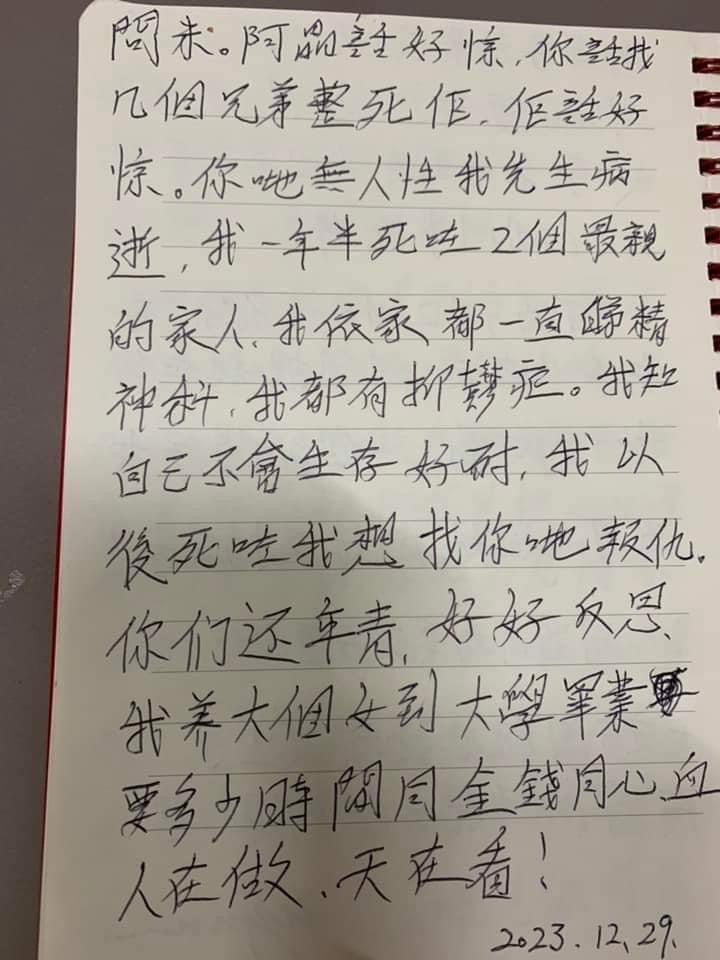 問未。阿晶話好惊，你話找
几個兄弟整死佢，佢話好
惊。你哋無人性我先生病
逝，我一年半死咗2個最親
的家人，我依家都一直睇精
神科，我都有抑鬱症。我知
自己不會生存好耐，我以
後死咗我想找你哋報仇。
你们还年青，好好反思、
我养大個女到大學畢業
要多少時間同金錢同心血
人在做、天在看！
2023.12.29.